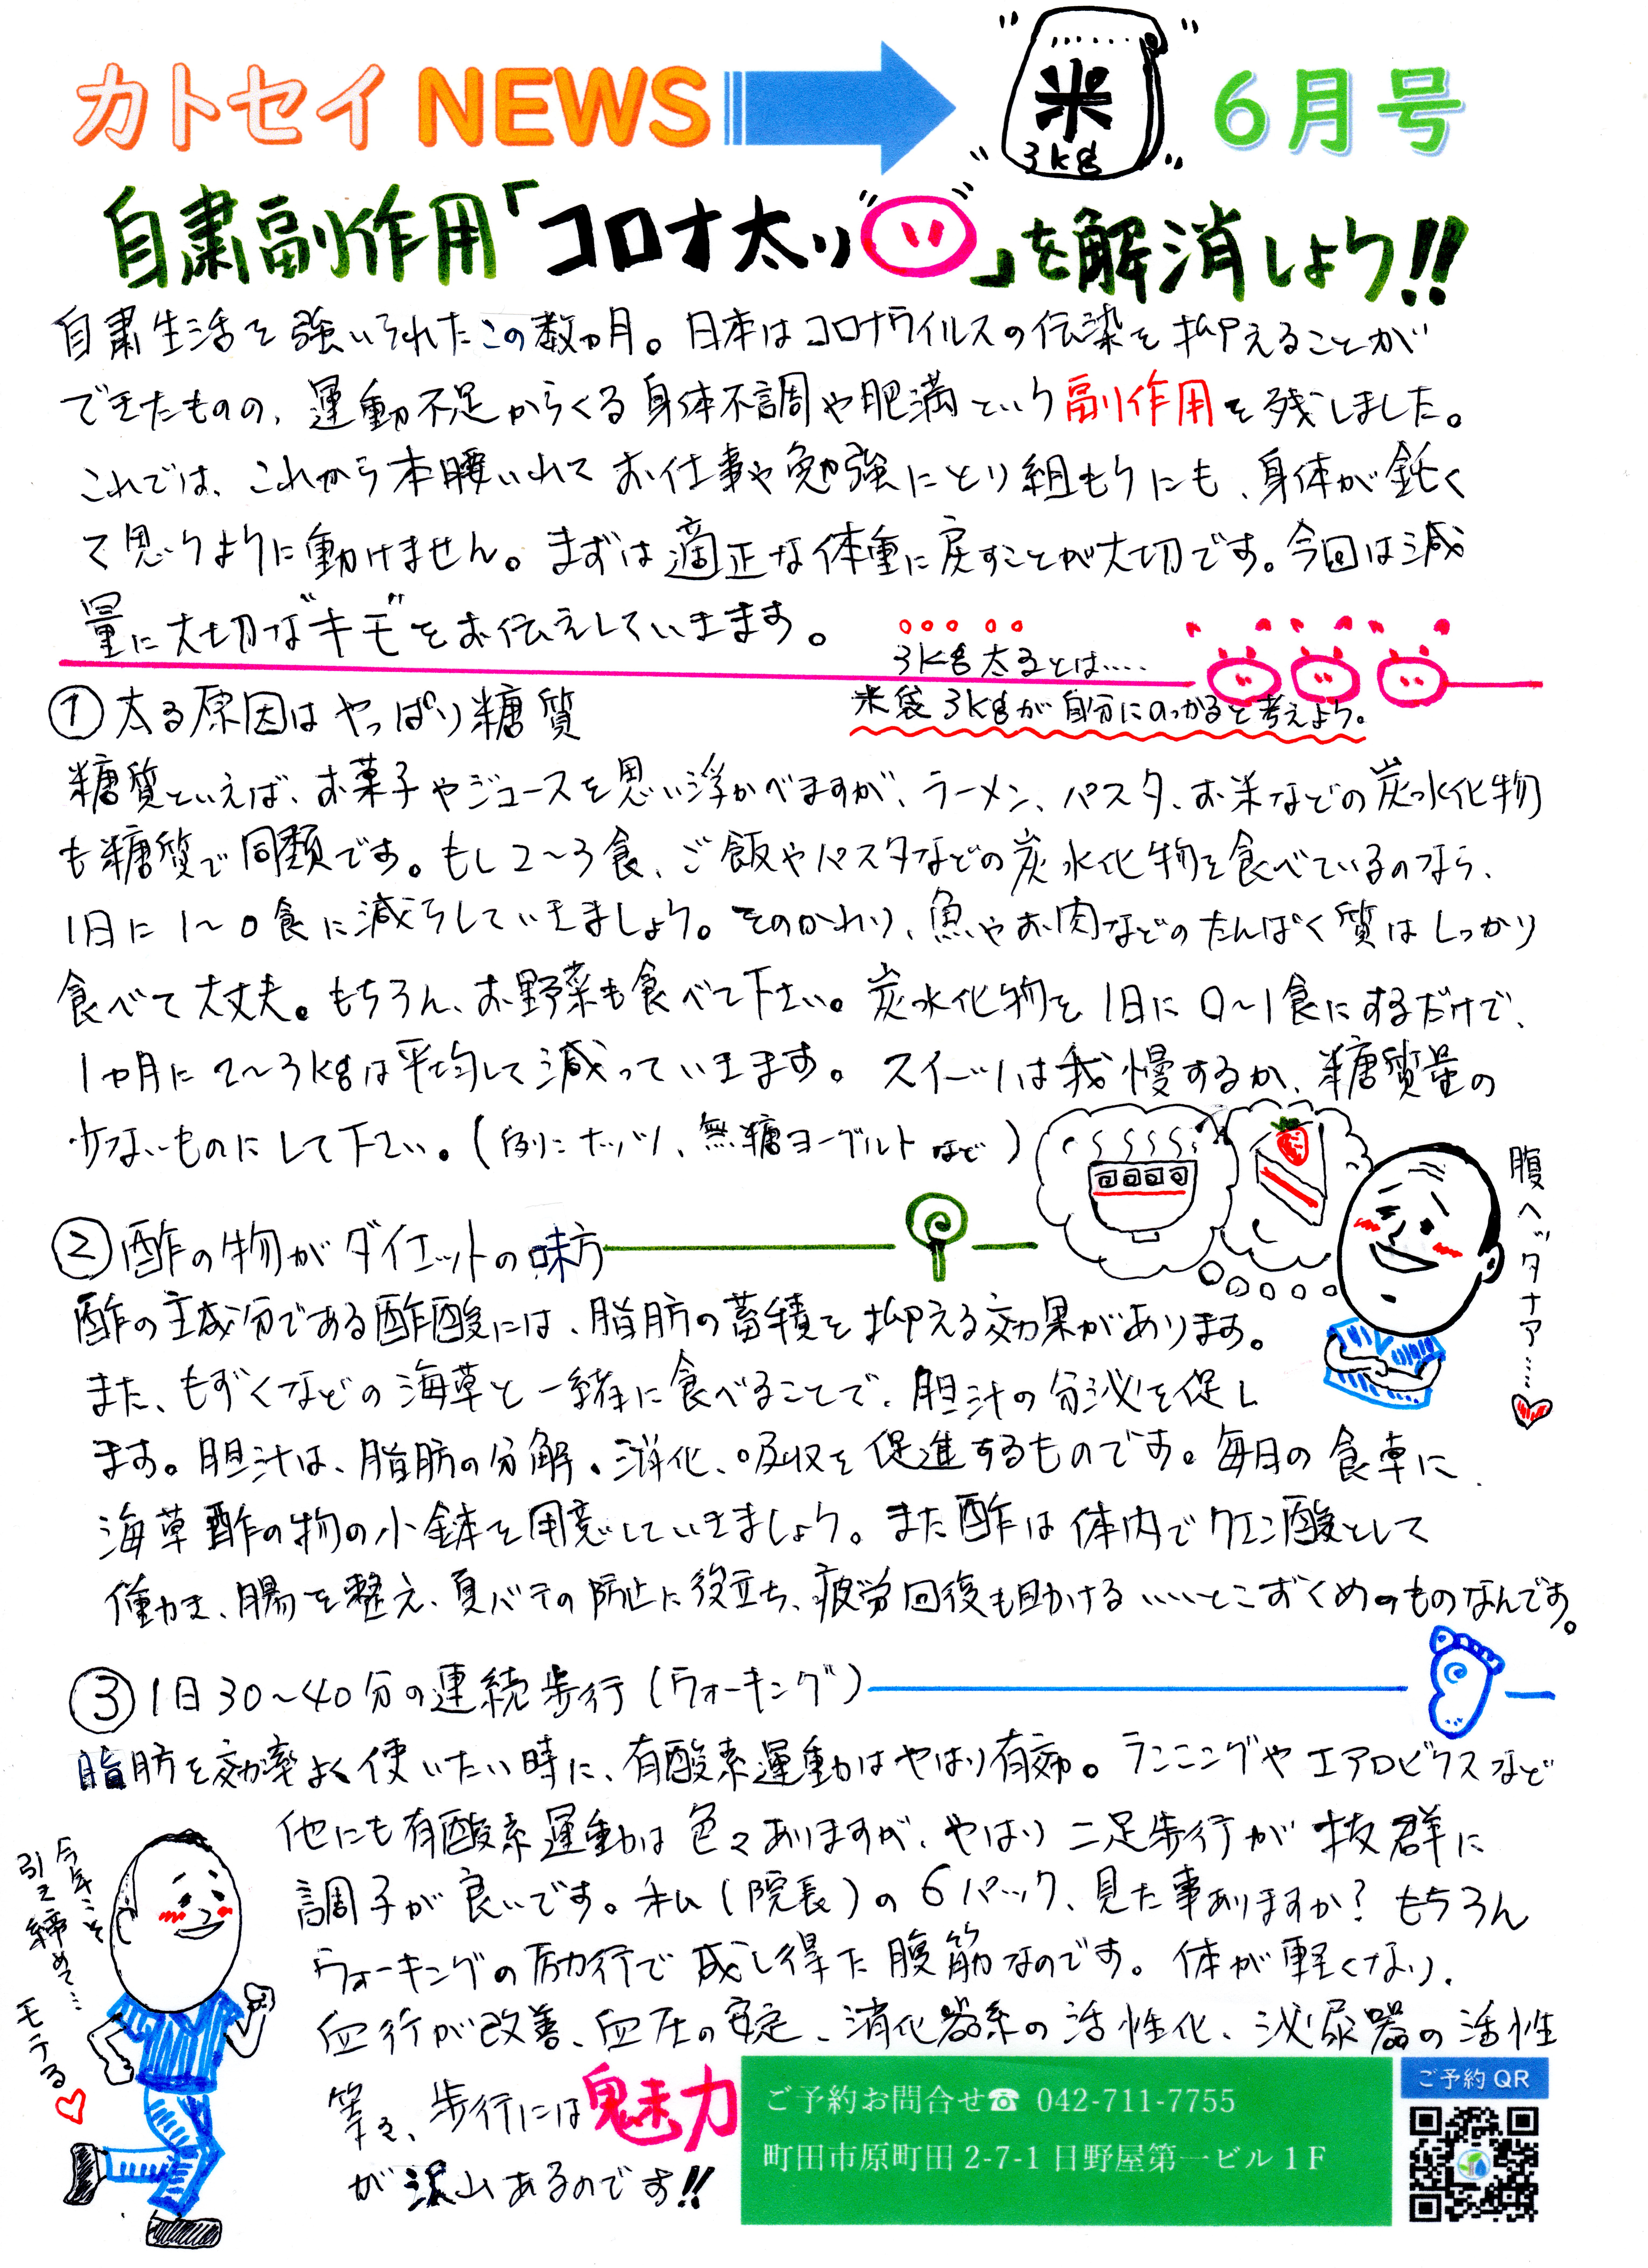 カトセイ NEWS
米
3kg
6月号
自粛副作用「コロナ太り」を解消しよう!!
自粛生活を強いられたこの数ヵ月。日本はコロナウイルスの伝染を抑えることが
できたものの、運動不足からくる身体不調や肥満という副作用を残しました。
これでは、これから本腰いれてお仕事や勉強にとり組もうにも、身体が鈍く
て思うように動けません。まずは適正な体重に戻すことが大切です。今回は減
量に大切な"キモ"をお伝えしていきます。
3kg太るとは‥‥
米袋3kgが自分にのっかると考えよう。
① 太る原因はやっぱり糖質
糖質といえば、お菓子やジュースを思い浮かべますが、ラーメン、パスタ、お米などの炭水化物
も糖質で同類です。もし2〜3食、ご飯やパスタなどの炭水化物を食べているのなら、
1日に1〜0食に減らしていきましょう。そのかわり、魚やお肉などのたんぱく質はしっかり
食べて大丈夫。もちろん、お野菜も食べて下さい。炭水化物を1日に0〜1食にするだけで、
1ヵ月に2〜3kgは平均して減っていきます。スイーツは我慢するか、糖質量の
少ないものにして下さい。(例:ナッツ、無糖ヨーグルトなど)
腹ヘッタナア‥‥
② 酢の物がダイエットの味方
酢の主成分である酢酸には、脂肪の蓄積を抑える効果があります。
また、もずくなどの海草と一緒に食べることで、胆汁の分泌を促し
ます。胆汁は、脂肪の分解、消化、吸収を促進するものです。毎日の食卓に
海草酢の物の小鉢を用意していきましょう。また酢は体内でクエン酸として
働き、腸を整え、夏バテの防止に役立ち、疲労回復も助けるいいとこずくめのものなんです。
③ 1日30〜40分の連続歩行(ウォーキング)
脂肪を効率よく使いたい時に、有酸素運動はやはり有効。ランニングやエアロビクスなど
他にも有酸素運動は色々ありますが、やはり二足歩行が抜群に
調子が良いです。私(院長)の6パック、見た事ありますか?もちろん
ウォーキングの励行で成し得た腹筋なのです。体が軽くなり、
血行が改善、血圧の安定、消化器系の活性化、泌尿器の活性
等々、歩行には魅力
が沢山あるのです!!
今年こそ
引き締めて…
モテる
ご予約お問合せ☎ 042-711-7755
町田市原町田 2-7-1 日野屋第一ビル 1F
ご予約 QR